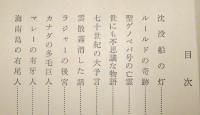 目次
沈没船の灯
ルールドの奇跡
聖ゲノベバ号の亡霊
世にも不思議な物語
七十世紀の大予言
雲散霧消した話
ラジャーの後宮
カナダの多毛巨人
マレーの有牙人
海南島の有尾人